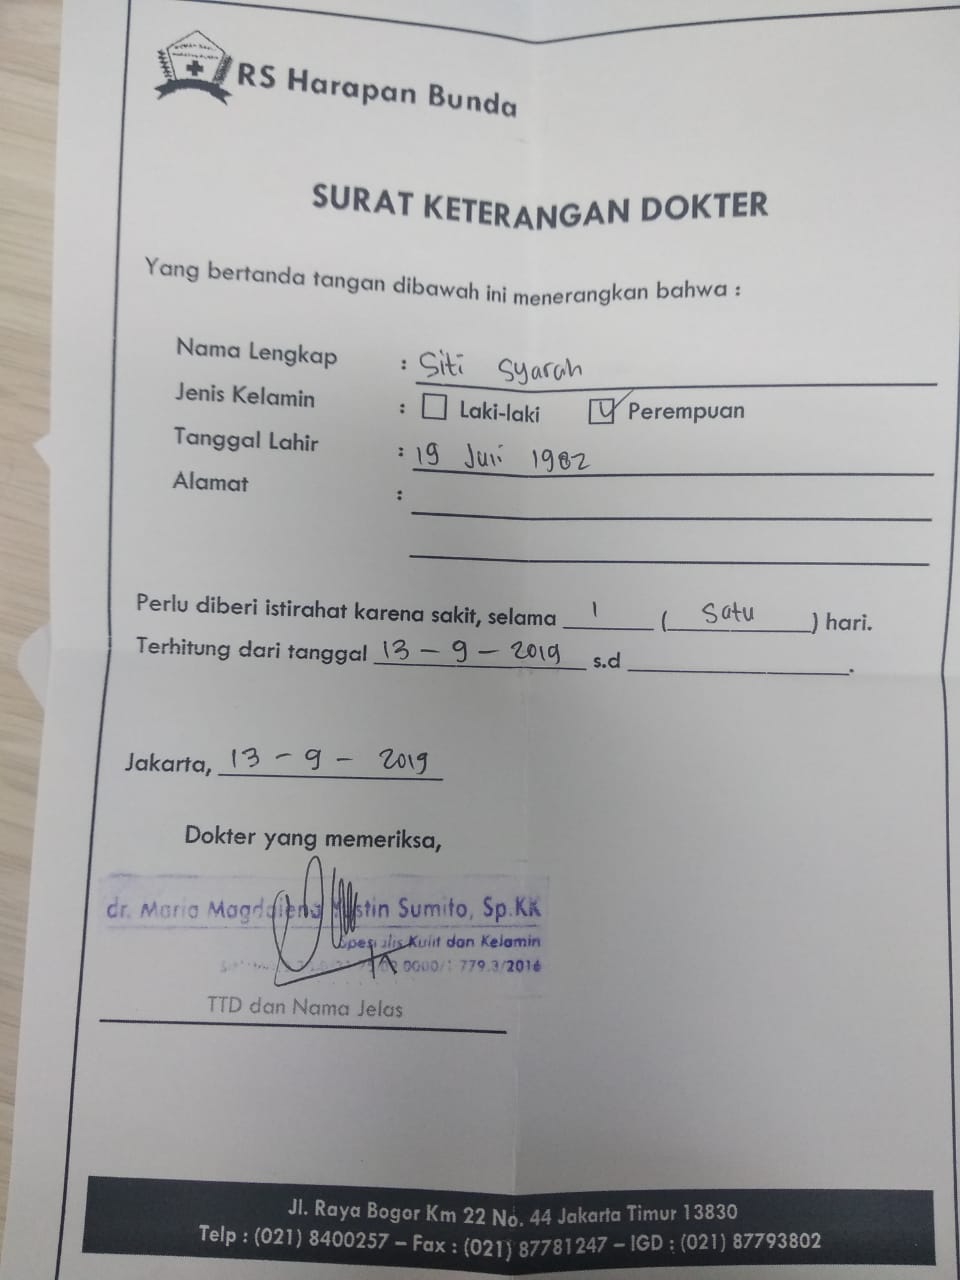 RS Harapan Bunda
SURAT KETERANGAN DOKTER
Yang bertanda tangan dibawah ini menerangkan bahwa :
Nama Lengkap : Siti Syarah
Jenis Kelamin : Laki-laki Perempuan
Tanggal Lahir : 19 Juli 1982
Alamat :
Perlu diberi istirahat karena sakit, selama 1 ( Satu ) hari.
Terhitung dari tanggal 13 - 9 - 2019 s.d .
Jakarta, 13 - 9 - 2019
Dokter yang memeriksa,
dr. Maria Magdalena Sumito, Sp.KK
Spesialis Kulit dan Kelamin
779.3/2016
TTD dan Nama Jelas
Jl. Raya Bogor Km 22 No. 44 Jakarta Timur 13830
Telp : (021) 8400257 – Fax : (021) 87781247 – IGD : (021) 87793802